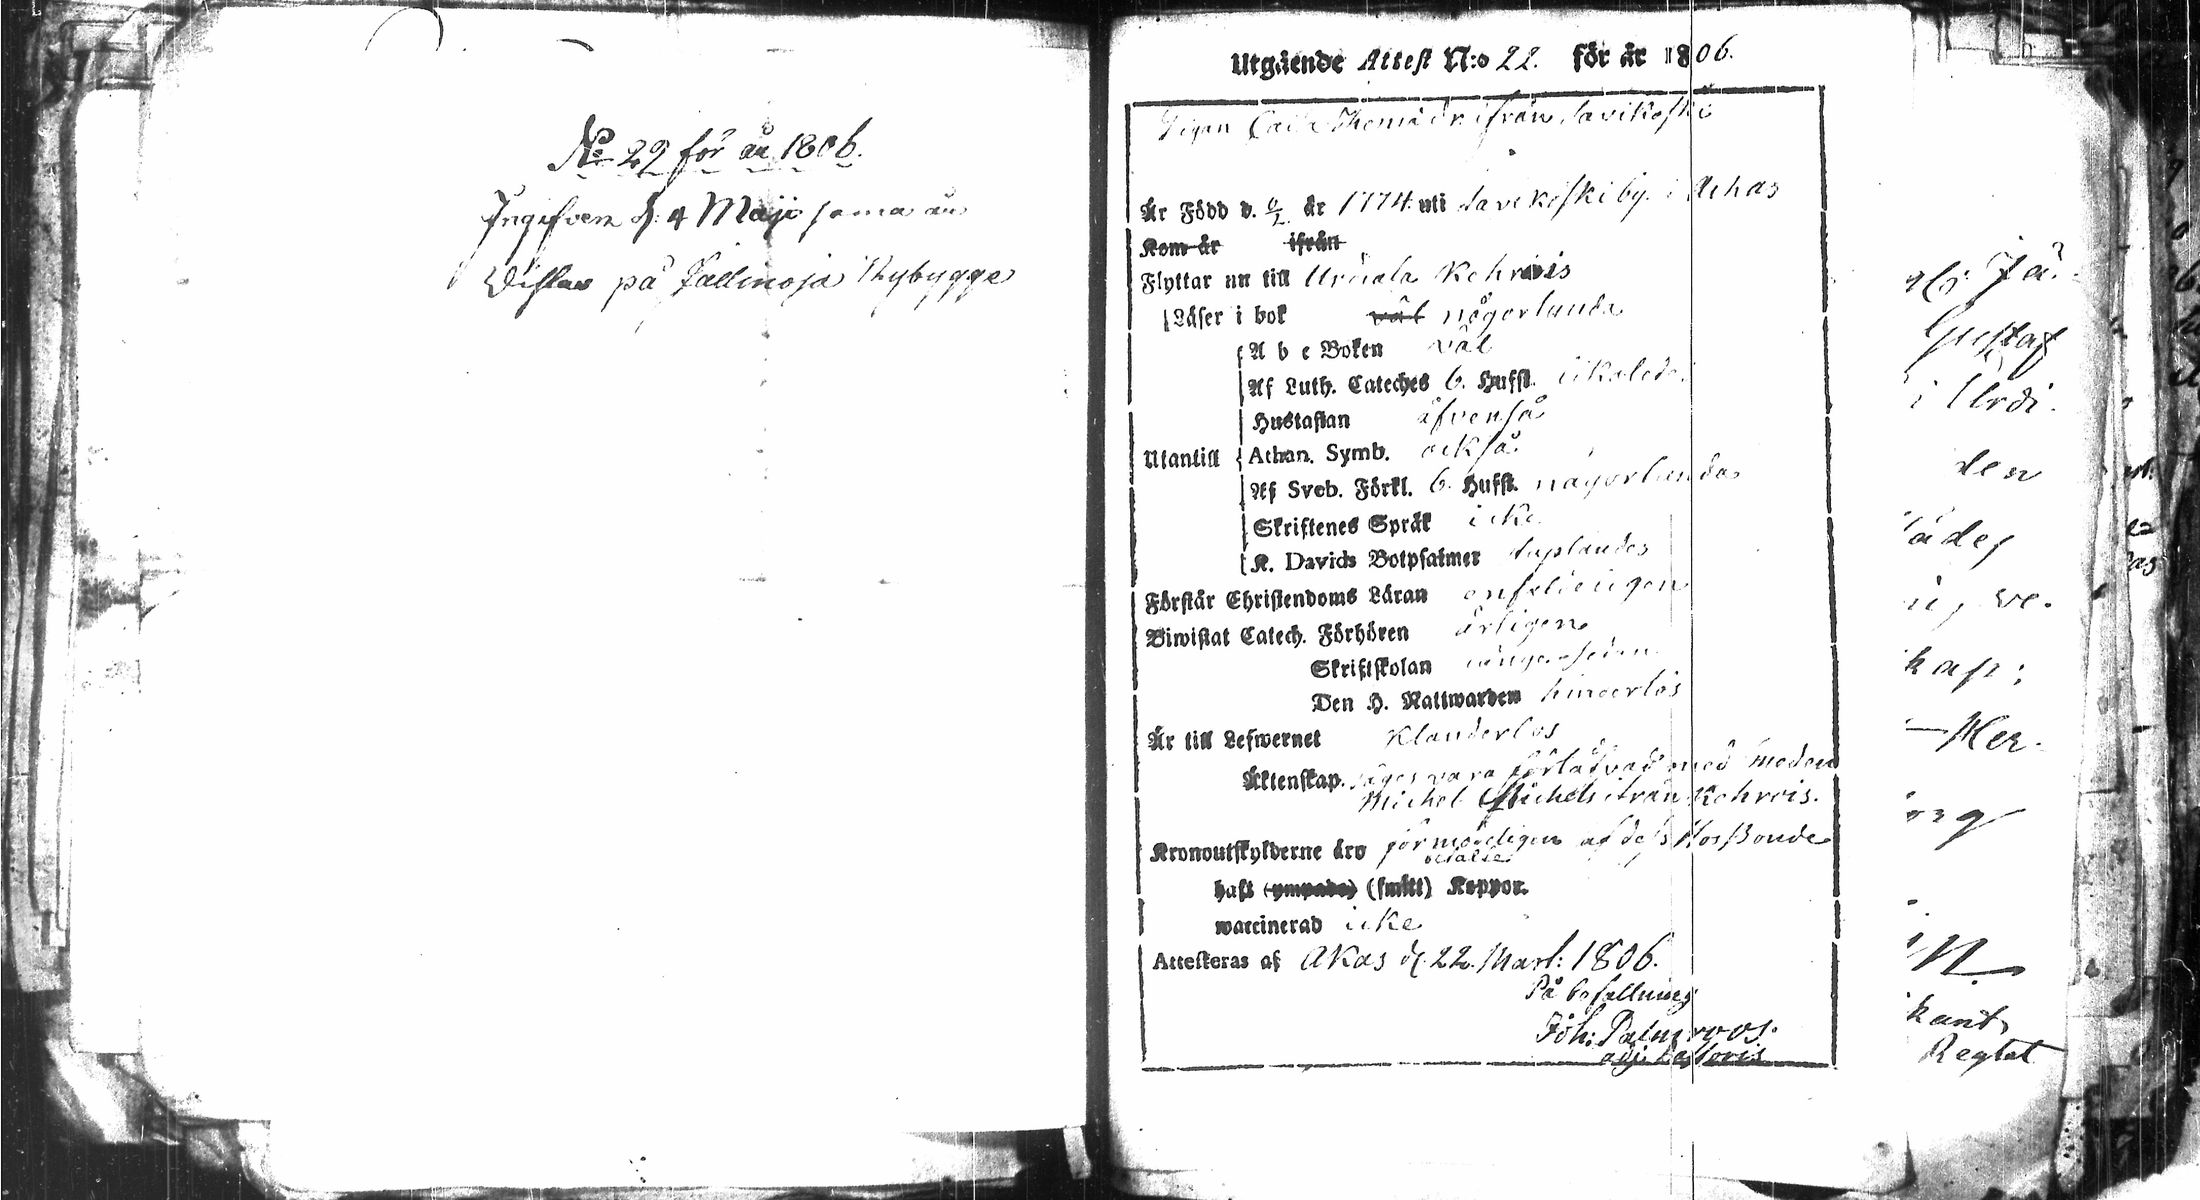 No 22 för år 1806.
Ingifven d. 4 Maji sama år
Vistas på Nybygge
Utgående Attest N:o 22. för år 1806.
Pigan Caisa Thomædr ifrån Savikoski
Är Född d. år 1774. uti Savikoski by i Achas
Kom år ifrån
Flyttar nu till Urdiala Kehrois
Läser i bok väl någorlunda
A b c Boken väl
Af Luth. Cateches 6. Hufst. likaledes
Hustaflan äfvenså
Utantill Athan. Symb. också
Af Sveb. Förkl. 6. Hufst. någorlunda
Skriftenes Språk icke
K. Davids Botpsalmer
Förstår Christendoms Läran enfaldeligen
Biwistat Catech. Förhören årligen
Skriftskolan
Den H. Nattwarden hinderlös
Är till Lefwernet klanderlös
Äktenskap. säges vara förlofvad med
Michel Michels ifrån Kehrois.
Kronoutskylderne äro förmodeligen af dess Hosbonde
betalte
haft (ympade) (smitt) Koppor.
waccinerad icke
Attesteras af Akas d. 22. Mart: 1806.
På befallning
Joh: Palmroos.
adj: Pastoris
Gustaf
i Urdi.
den
Regtet